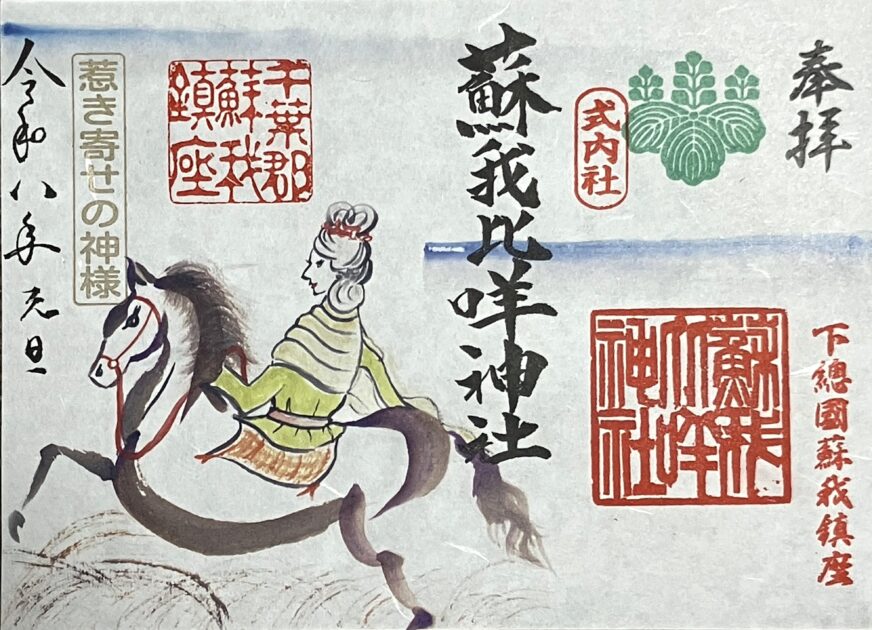 奉拝
式内社
下總國蘇我鎮座
蘇我比咩神社
蘇我
比咩
神社
千葉郡
蘇我
鎮座
惹き寄せの神様
令和八年元旦